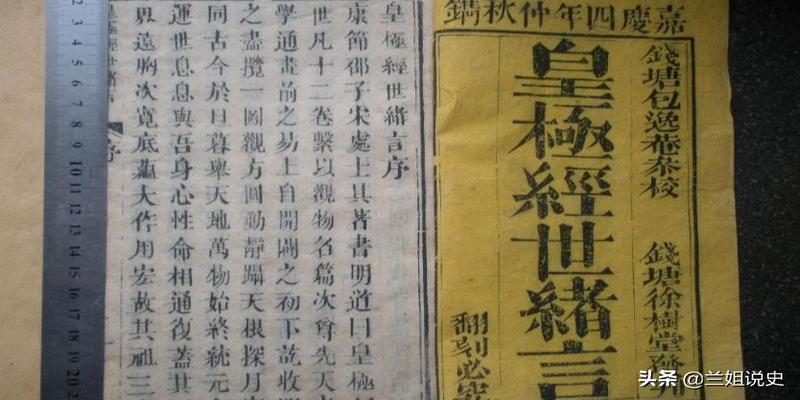 嘉慶四年仲秋鐫
錢塘包逸菴叅校 錢塘徐樹堂
皇極經世緒言
翻刻必
皇極經世緒言序
康節邵子宋處士其著書明道曰皇極經
世凡十二卷繫以觀物名篇次尊先天
學通畫前之易上自開闢之初下訖收
之盡攬一圖觀方圓動靜躡天根探月
同古今於日暮舉天地萬物始終統元
運世息息與吾身心性命相通復蓋其
界遠胸次寬底蘊大作用宏故其祖三
皇極經世緒言 序
2 3 4 5 6 7 8 9 10 11 12 13 14 15 16 17 18 19 20
头条 @兰姐说史